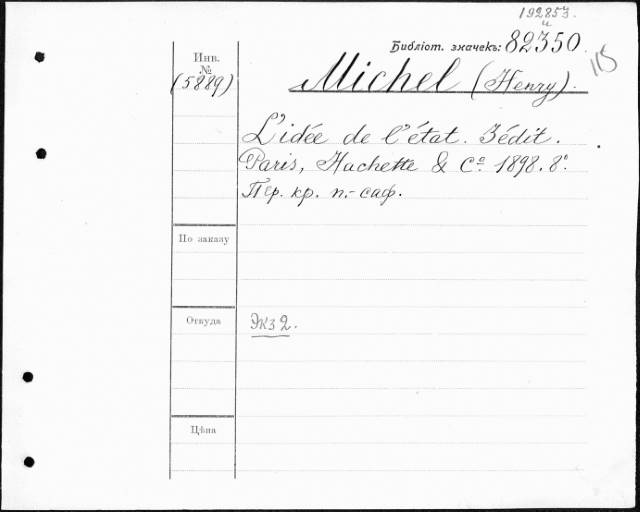 192853.
и
Библіот. значекъ: 82350.
115
Инв.
№
(5889)
Michel (Henry).
L'idée de l'état. 3édit.
Paris, Hachette & Cº 1898. 8º.
Пер. кр. п.- саф.
По заказу
Откуда
Экз 2.
Цѣна